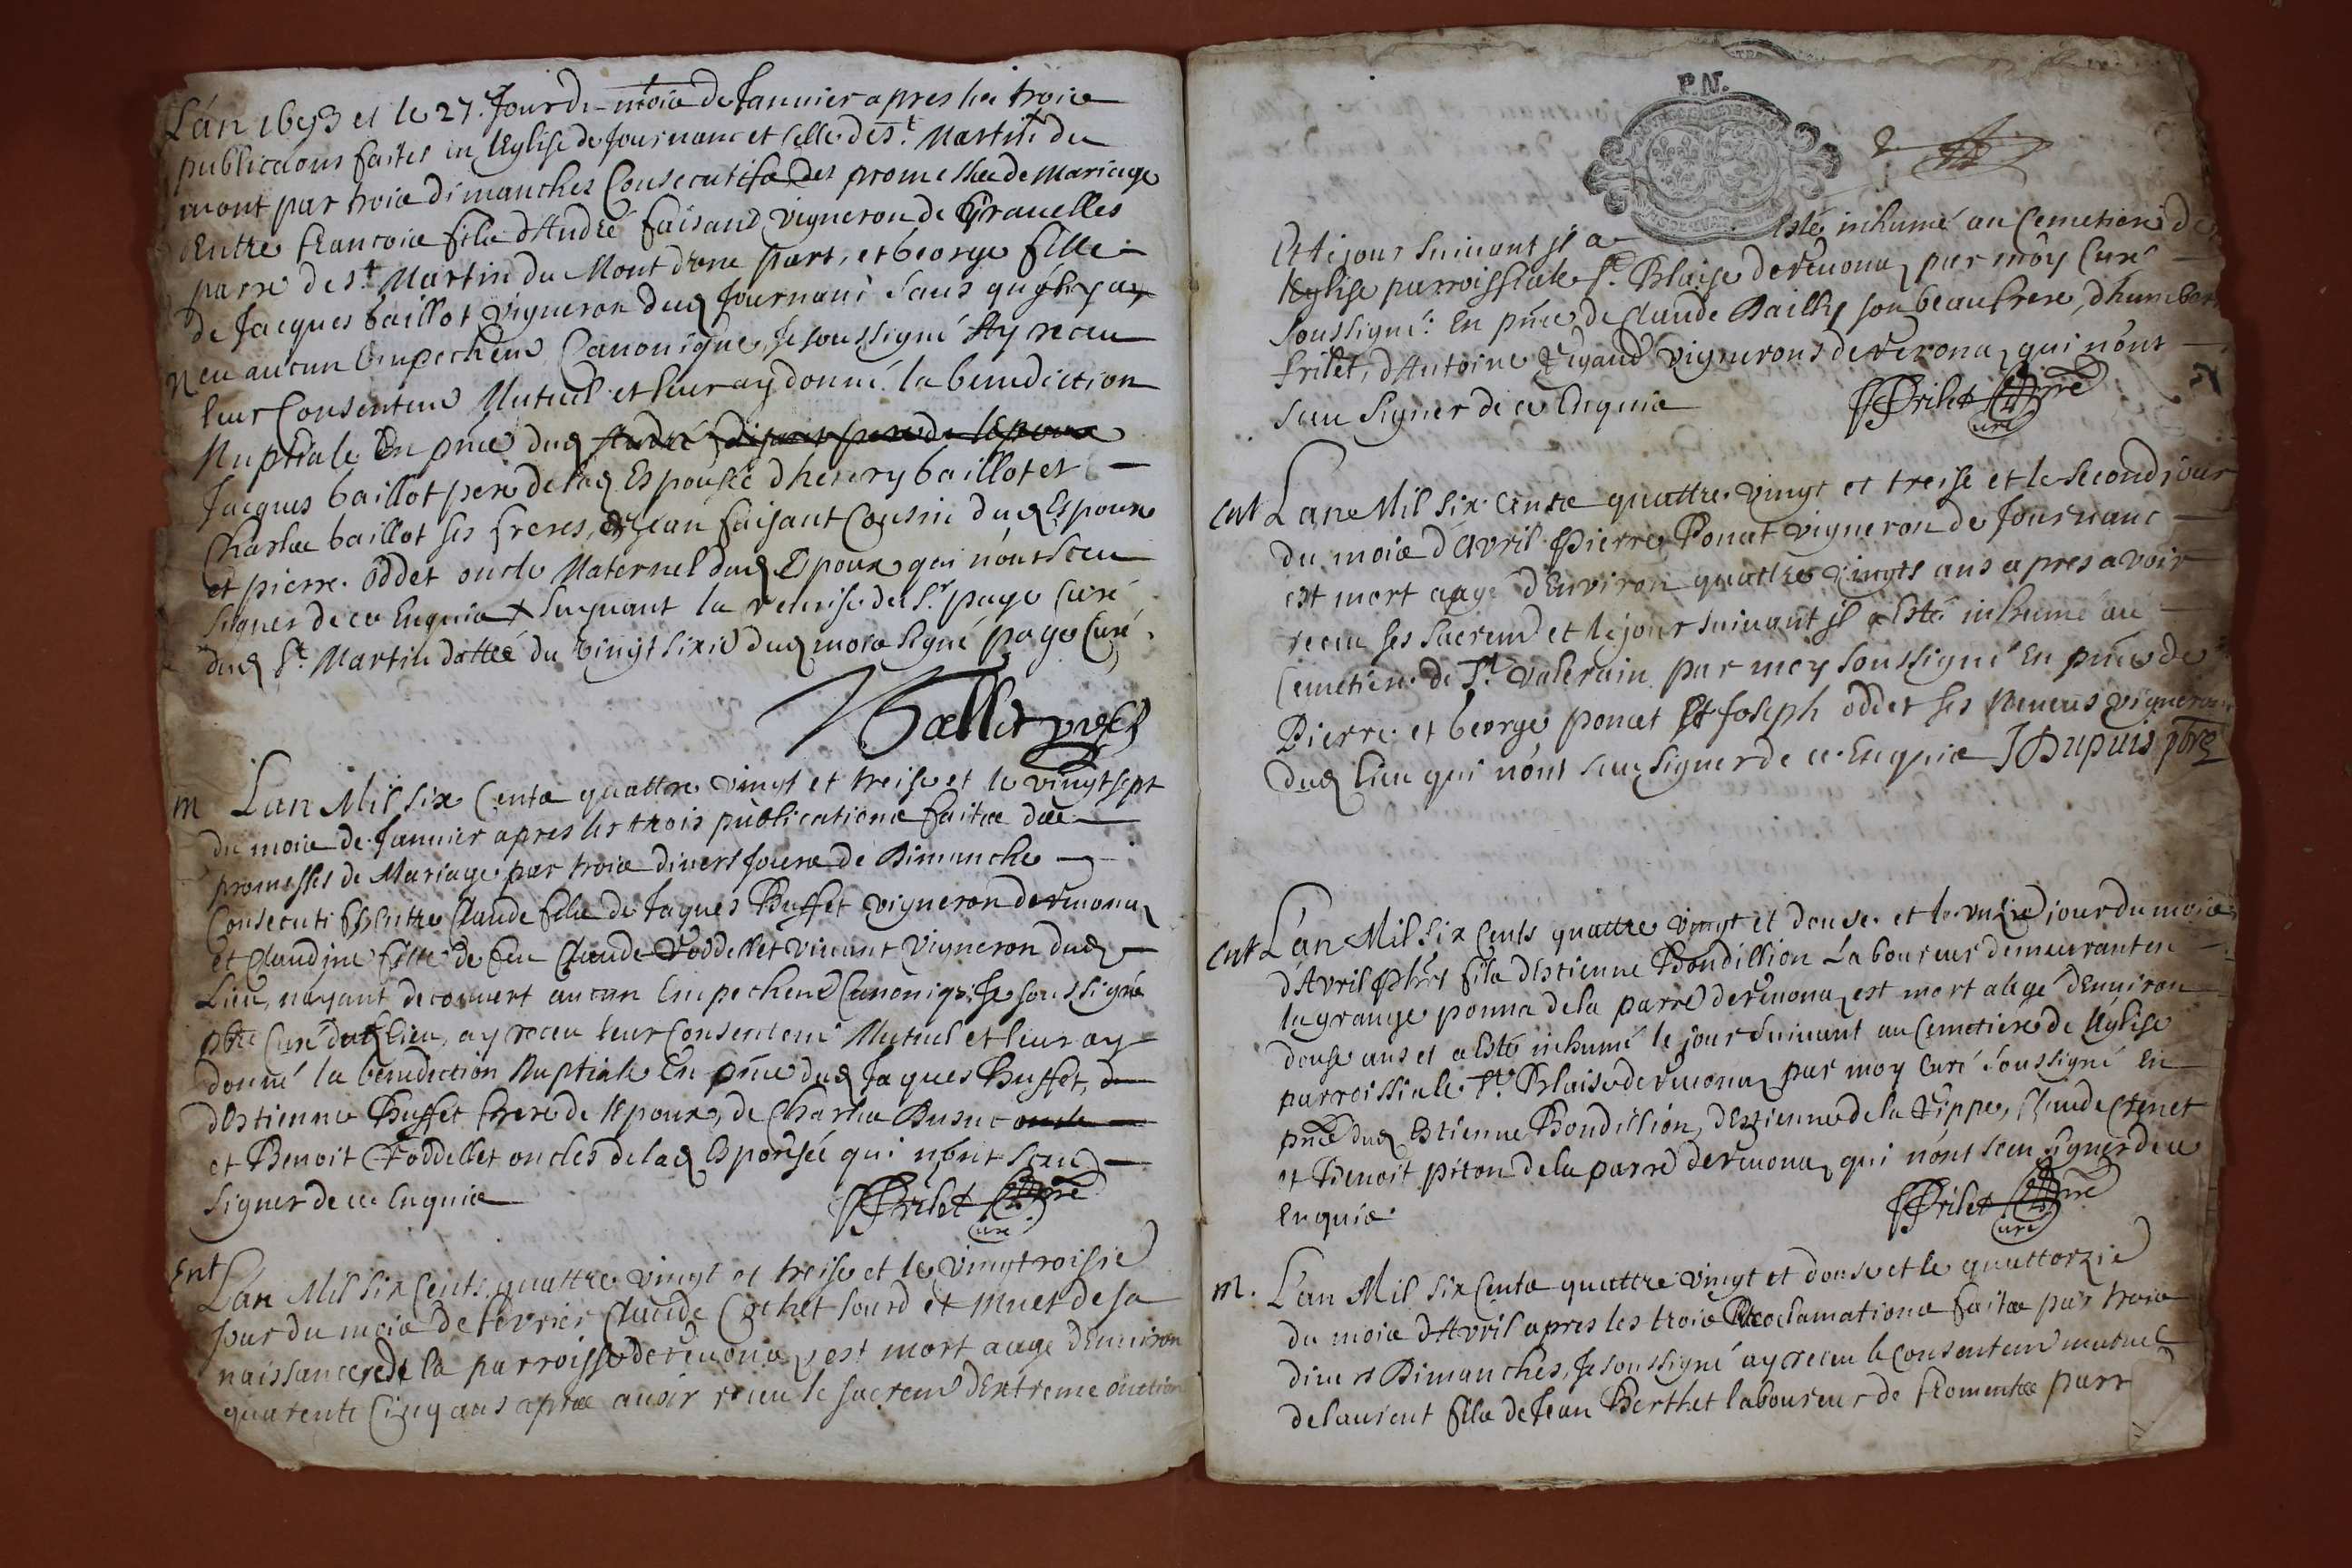 L'an 1693 et le 27.e Jour du mois de Januier apres les trois
publicaons faites en l'Eglise de Journanc et celle de St. Martin du
mont par trois dimanches Consecutifs des promesses de Mariage
Entre francois fils d'André faisand vigneron de Grauelles
parre de St Martin du Mont d'une part, et George fille
de Jacques baillot vigneron dud Journanc sans qu'il y ay
eu aucun Empechem Canonique, Je soussigné Ay receu
leur Consentem Mutuel et leur ay donné la benediction
Nuptiale En pnce dud
Jacques baillot pere de lad Espousée d'henry baillot et
Charles baillot ses freres, de Jean faisant Cousin dud Espoux
et pierre Oddet oncle Maternel dud Epoux qui n'ont sceu
signer de ce Enquis suyuant la remise du Sr. page Curé
dud St. Martin dattée du vingt sixie dud mois signé page Curé.
m L'an Mil Six Cents quattre vingt et treise et le vingt sept
du mois de Januier apres les trois publications faites des
promesses de Mariage par trois divers Jours de Dimanche
Consecutifs Entre Claude fils de Jaques Buffet vigneron de reuona
et Claudine fille de feu Claude Voddellet viuant Vigneron dud
Lieu, n'ayant decouvert aucun Empechem Canoniq. Je soussigné
pbre Curé dud Lieu, ay receu leur Consentem Mutuel et leur ay
donné la benediction Nuptiale En pnce dud Jaques Buffet,
d'Estienne Buffet frere de l'Epoux, de Charles Busuc
et Benoit Voddellet oncles de lad Espousée qui n'ont sceu
signer de ce Enquis FFrilet pre Curé
Ent L'an Mil Six Cents quattre vingt et treise et le vingt troisie
Jour du mois de fevrier Claude Cochet sourd et muet de sa
naissance de la parroisse de reuona est mort aage d'Enuiron
quarente Cinq ans apres auoir receu le sacrem d'Extreme onction
P.N.
2
Et le jour suiuant il a Esté inhumé au Cemetiere de
l'Eglise parroissiale St. Blaise de reuona par moy Curé
soussigné: En pnce de Claude Bailly son beaufrere, d'humbert
frilet, d'Antoine Vigaud vignerons de reuona qui n'ont
sceu signer de ce Enquis FFrilet pre Curé
Ent L'an Mil Six Cents quattre vingt et treise et le Second jour
du mois d'Avril Pierre Ponat vigneron de Journanc
est mort aagé d'Environ quattre vingts ans apres avoir
receu ses sacrem et le jour suiuant il a Esté inhumé au
Cemetiere de St Valerain par moy soussigné En pnce de
Pierre et George poncet Et Joseph oddet ses Neueus vignerons
dud lieu qui n'ont sceu signer de ce Enquis J Dupuis pbre
Ent L'an Mil Six Cents quattre vingt et douse et le unzie jour du mois
d'Avril fils d'Estienne Bondillion Laboureur demeurant en
la grange ponna de la parre de reuona est mort aagé d'Enuiron
douse ans et a Esté inhumé le jour suiuant au Cemetiere de l'Eglise
parroissiale St. Blaise de reuona par moy Curé soussigné En
pnce dud Estienne Bondillion, d'Estienne de la Vippe, Claude Chenet
et Benoit piton de la parre de reuona qui n'ont sceu signer de ce
Enquis. FFrilet pre Curé
m. L'an Mil Six Cents quattre vingt et douse et le quattorzie
du mois d'Avril apres les trois Proclamations faites par trois
divers Dimanches, Je soussigné ay receu le Consentem mutuel
de laurent fils de Jean Berthet laboureur de fromentes parr